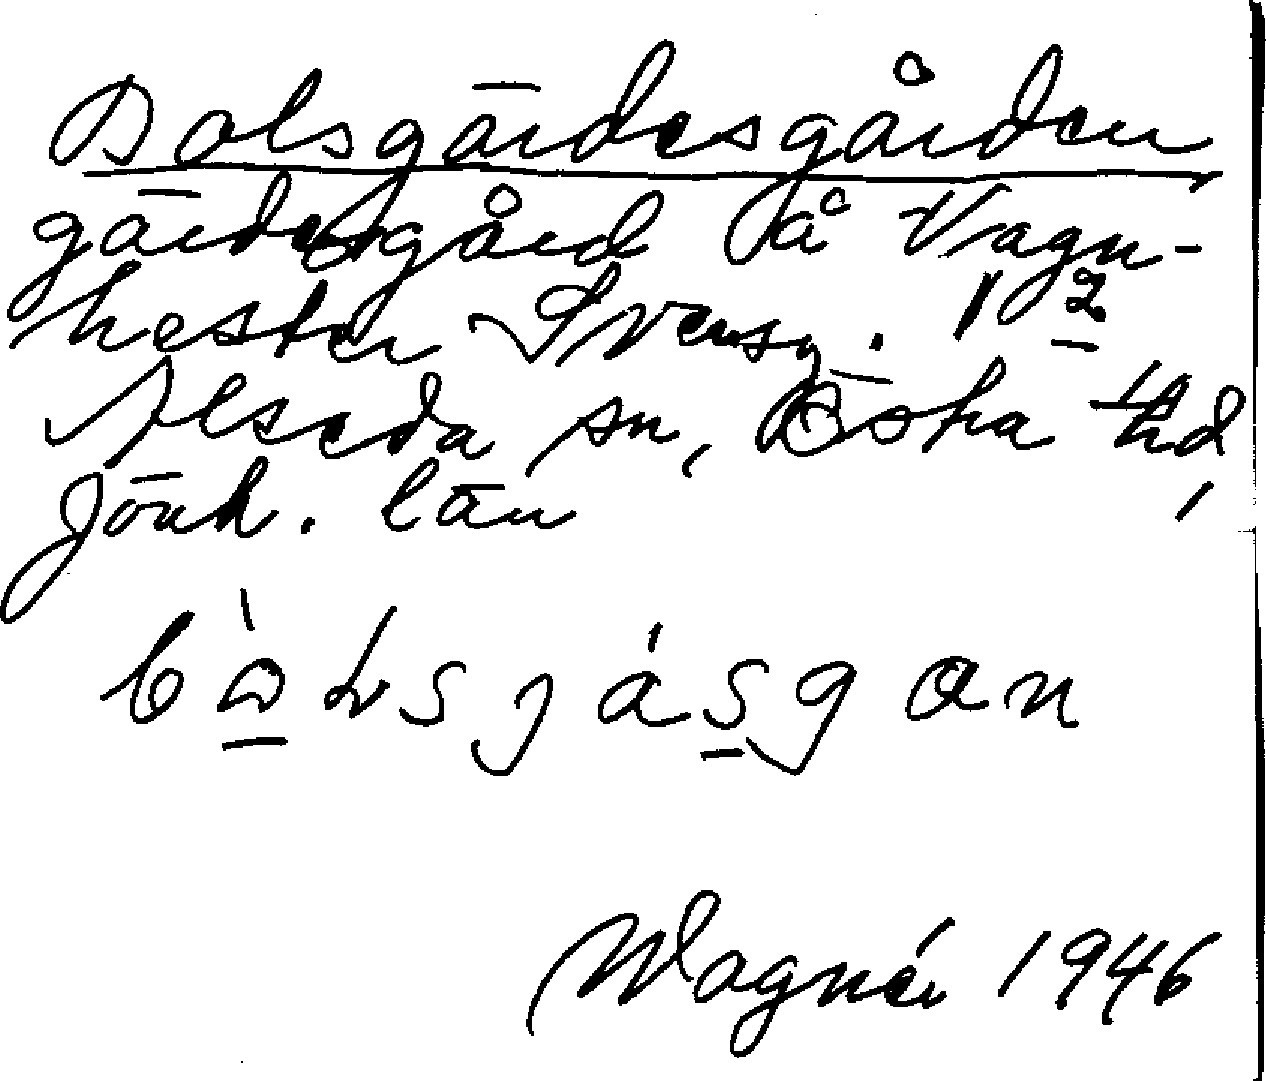 Bolsgärdesgården
gärdesgård på Vagn-
hester Svensy. 1 2
Alseda sn, Östra hd,
Jönk. län
Wagnér 1946